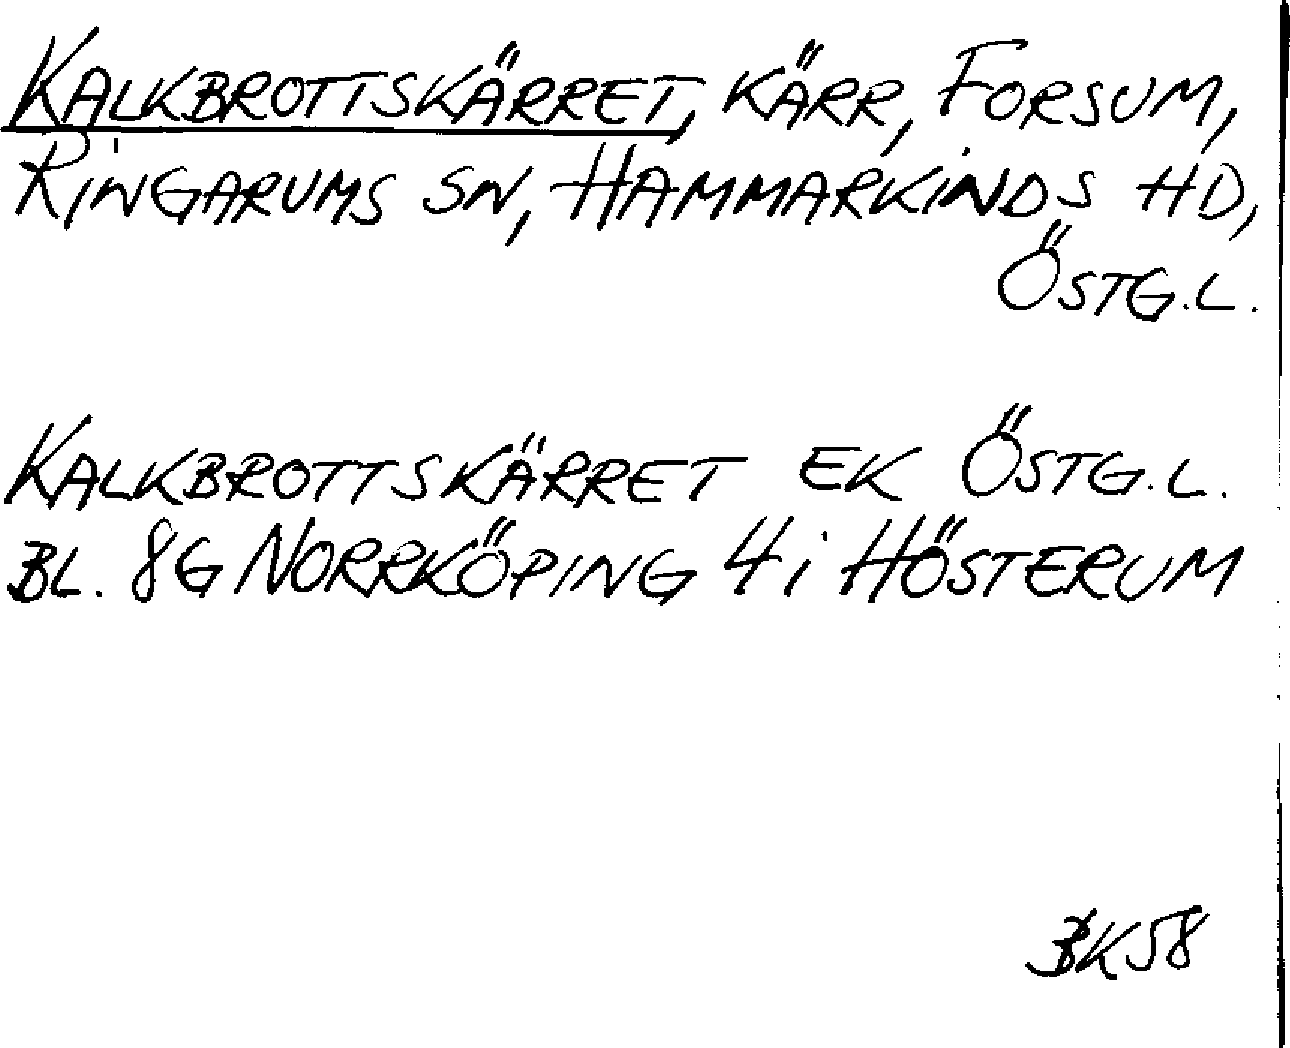 KALKBROTTSKÄRRET, KÄRR, FORSUM,
RINGARUMS SN, HAMMARKINDS HD,
ÖSTG.L.
KALKBROTTSKÄRRET EK ÖSTG.L.
BL. 8G NORRKÖPING 4i HÖSTERUM
BK58